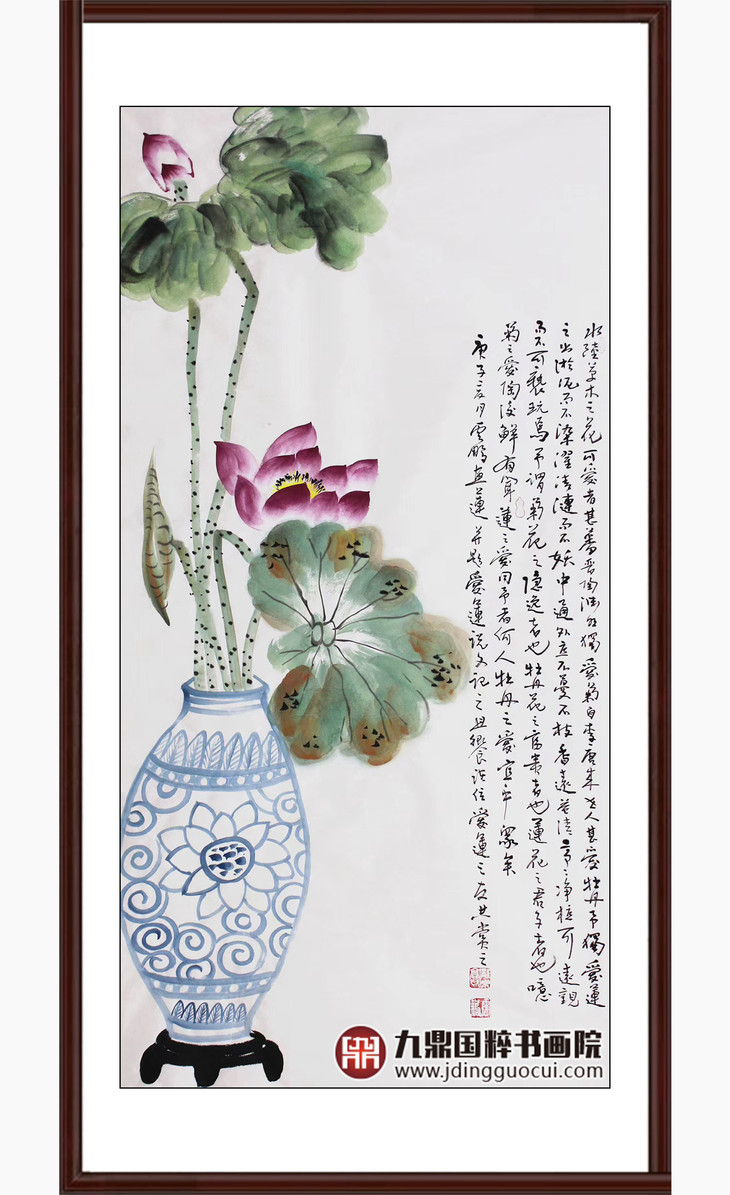 水陸草木之花可愛者甚蕃晋陶渊明獨愛菊自李唐来世人甚愛牡丹予獨愛蓮
之出淤泥而不染濯清漣而不妖中通外直不蔓不枝香遠益清亭亭净植可遠觀
而不可褻玩焉予謂菊花之隐逸者也牡丹花之富貴者也蓮花之君子者也噫
菊之愛陶後鮮有聞蓮之愛同予者何人牡丹之愛宜乎眾矣
庚子夏月雲鵬画蓮并题愛蓮说文記之且饗诸位愛蓮之友共賞之
九鼎国粹书画院
www.jdingguocui.com